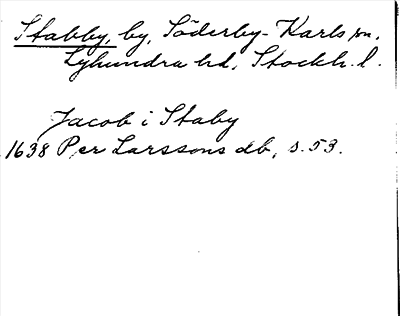 Stabby, by, Söderby-Karls sn.
Lyhundra hd, Stockh. l.
Jacob i Staby
1638 Per Larssons db, s. 53.